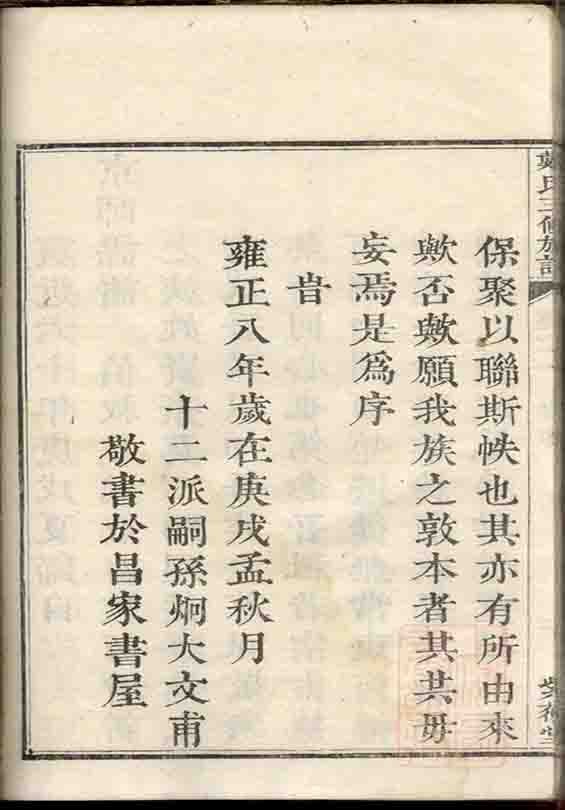 氏三修族譜
保聚以聯斯帙也其亦有所由來
歟否歟願我族之敦本者其共毋
妄焉是爲序
旹
雍正八年歲在庚戌孟秋月
十二派嗣孫炯大文甫
敬書於昌家書屋
堂